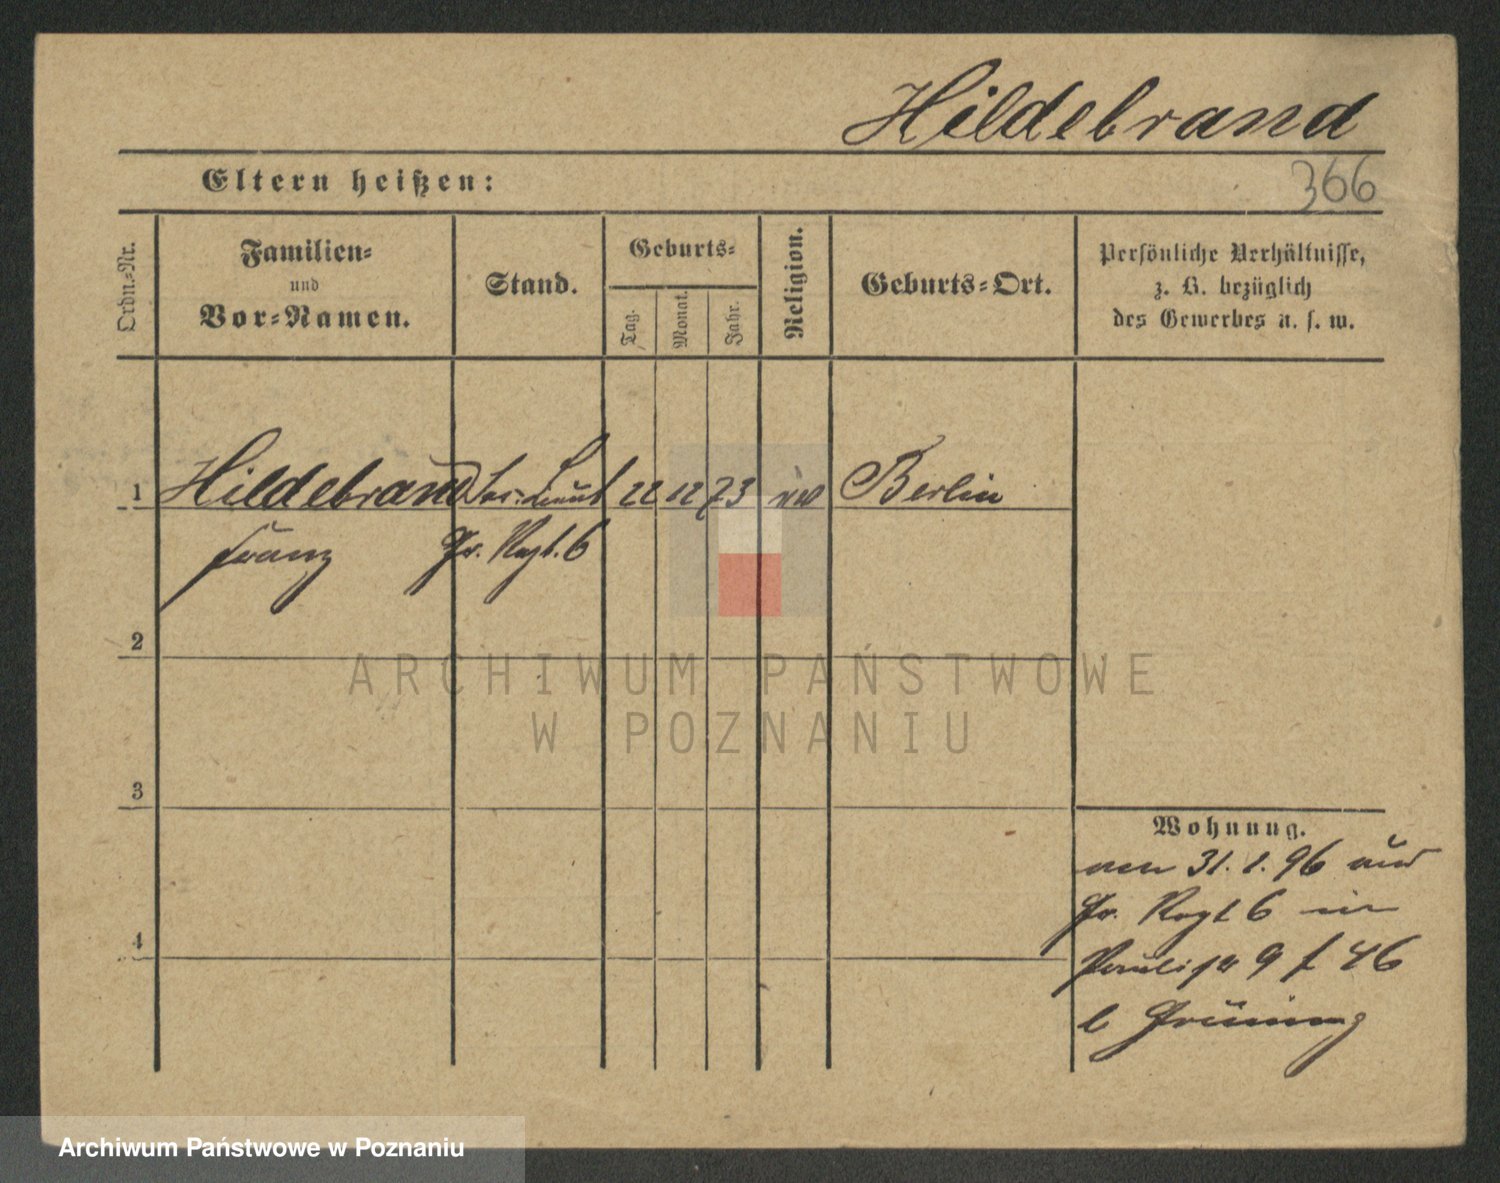 Hildebrand
Eltern heißen:
366
Ordn.-Nr.
Familien-
und
Vor-Namen.
Stand.
Geburts-
Tag.
Monat.
Jahr.
Religion.
Geburts-Ort.
Persönliche Verhältnisse,
z. B. bezüglich
des Gewerbes u. s. w.
1 Hildebrand Leut 22 12 73 Berlin
Franz Gr. Regt. 6
2
ARCHIWUM PAŃSTWOWE
W POZNANIU
3
Wohnung.
31. 1. 96
Gr. Regt 6 in
4
Paulistr 9 f 46
b Grüning
Archiwum Państwowe w Poznaniu